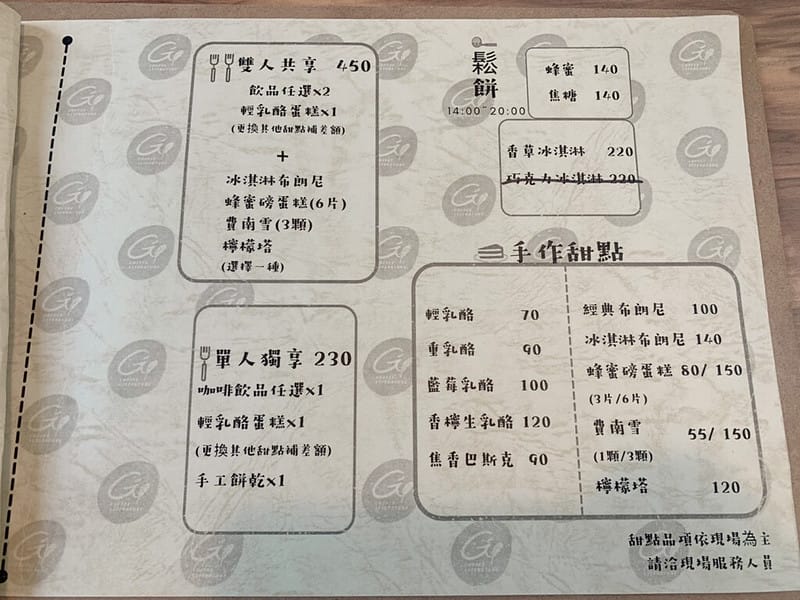 雙人共享 450
飲品任選x2
輕乳酪蛋糕x1
(更換其他甜點補差額)
+
冰淇淋布朗尼
蜂蜜磅蛋糕(6片)
費南雪(3顆)
檸檬塔
(選擇一種)
單人獨享 230
咖啡飲品任選x1
輕乳酪蛋糕x1
(更換其他甜點補差額)
手工餅乾x1
鬆餅
14:00~20:00
蜂蜜 140
焦糖 140
香草冰淇淋 220
巧克力冰淇淋 220
手作甜點
輕乳酪 70
重乳酪 90
藍莓乳酪 100
香檸生乳酪 120
焦香巴斯克 90
經典布朗尼 100
冰淇淋布朗尼 140
蜂蜜磅蛋糕 80/ 150
(3片/6片)
費南雪 55/ 150
(1顆/3顆)
檸檬塔 120
甜點品項依現場為主
請洽現場服務人員